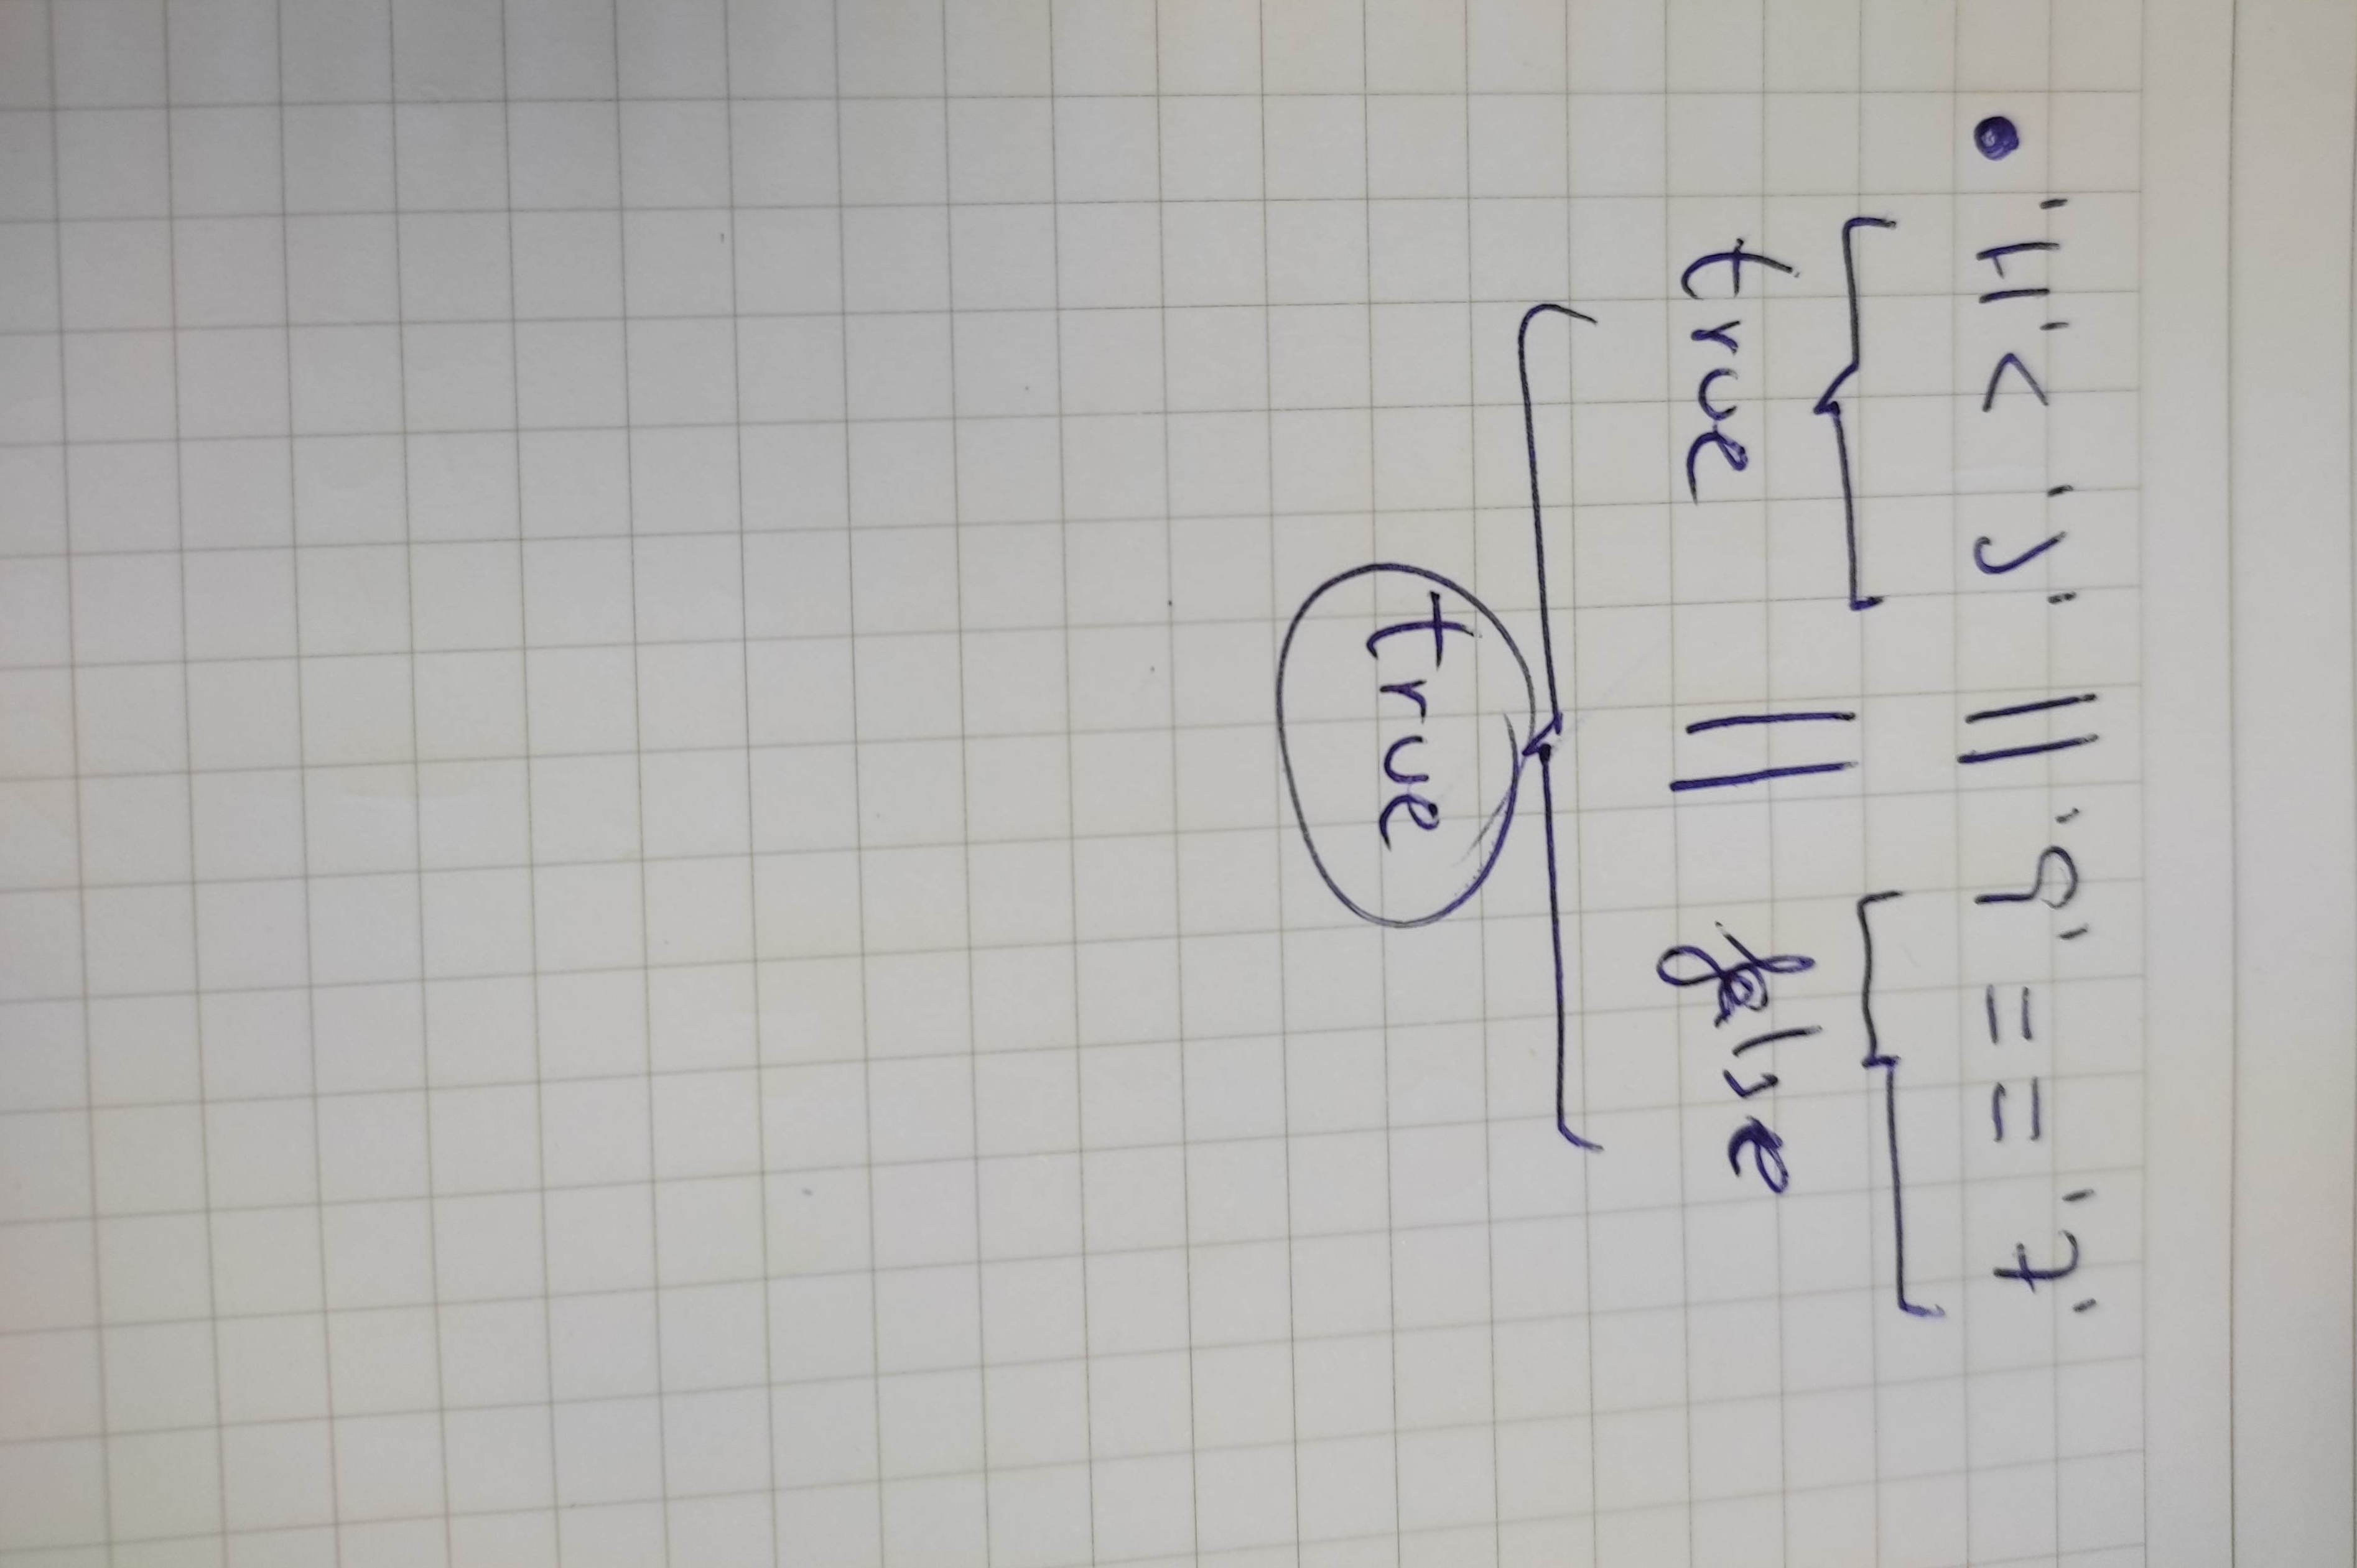 • 'H' < 'J' || '9' == '4'
true || false
true